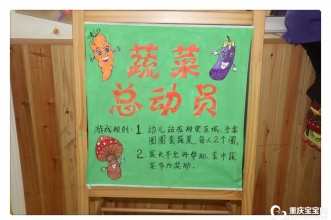 蔬菜
总动员
游戏规则：1. 幼儿站在规定区域，手拿
圈圈套蔬菜，每人2个圈，
2. 家长不允许帮助，套中蔬
菜即为奖励。
重庆宝宝